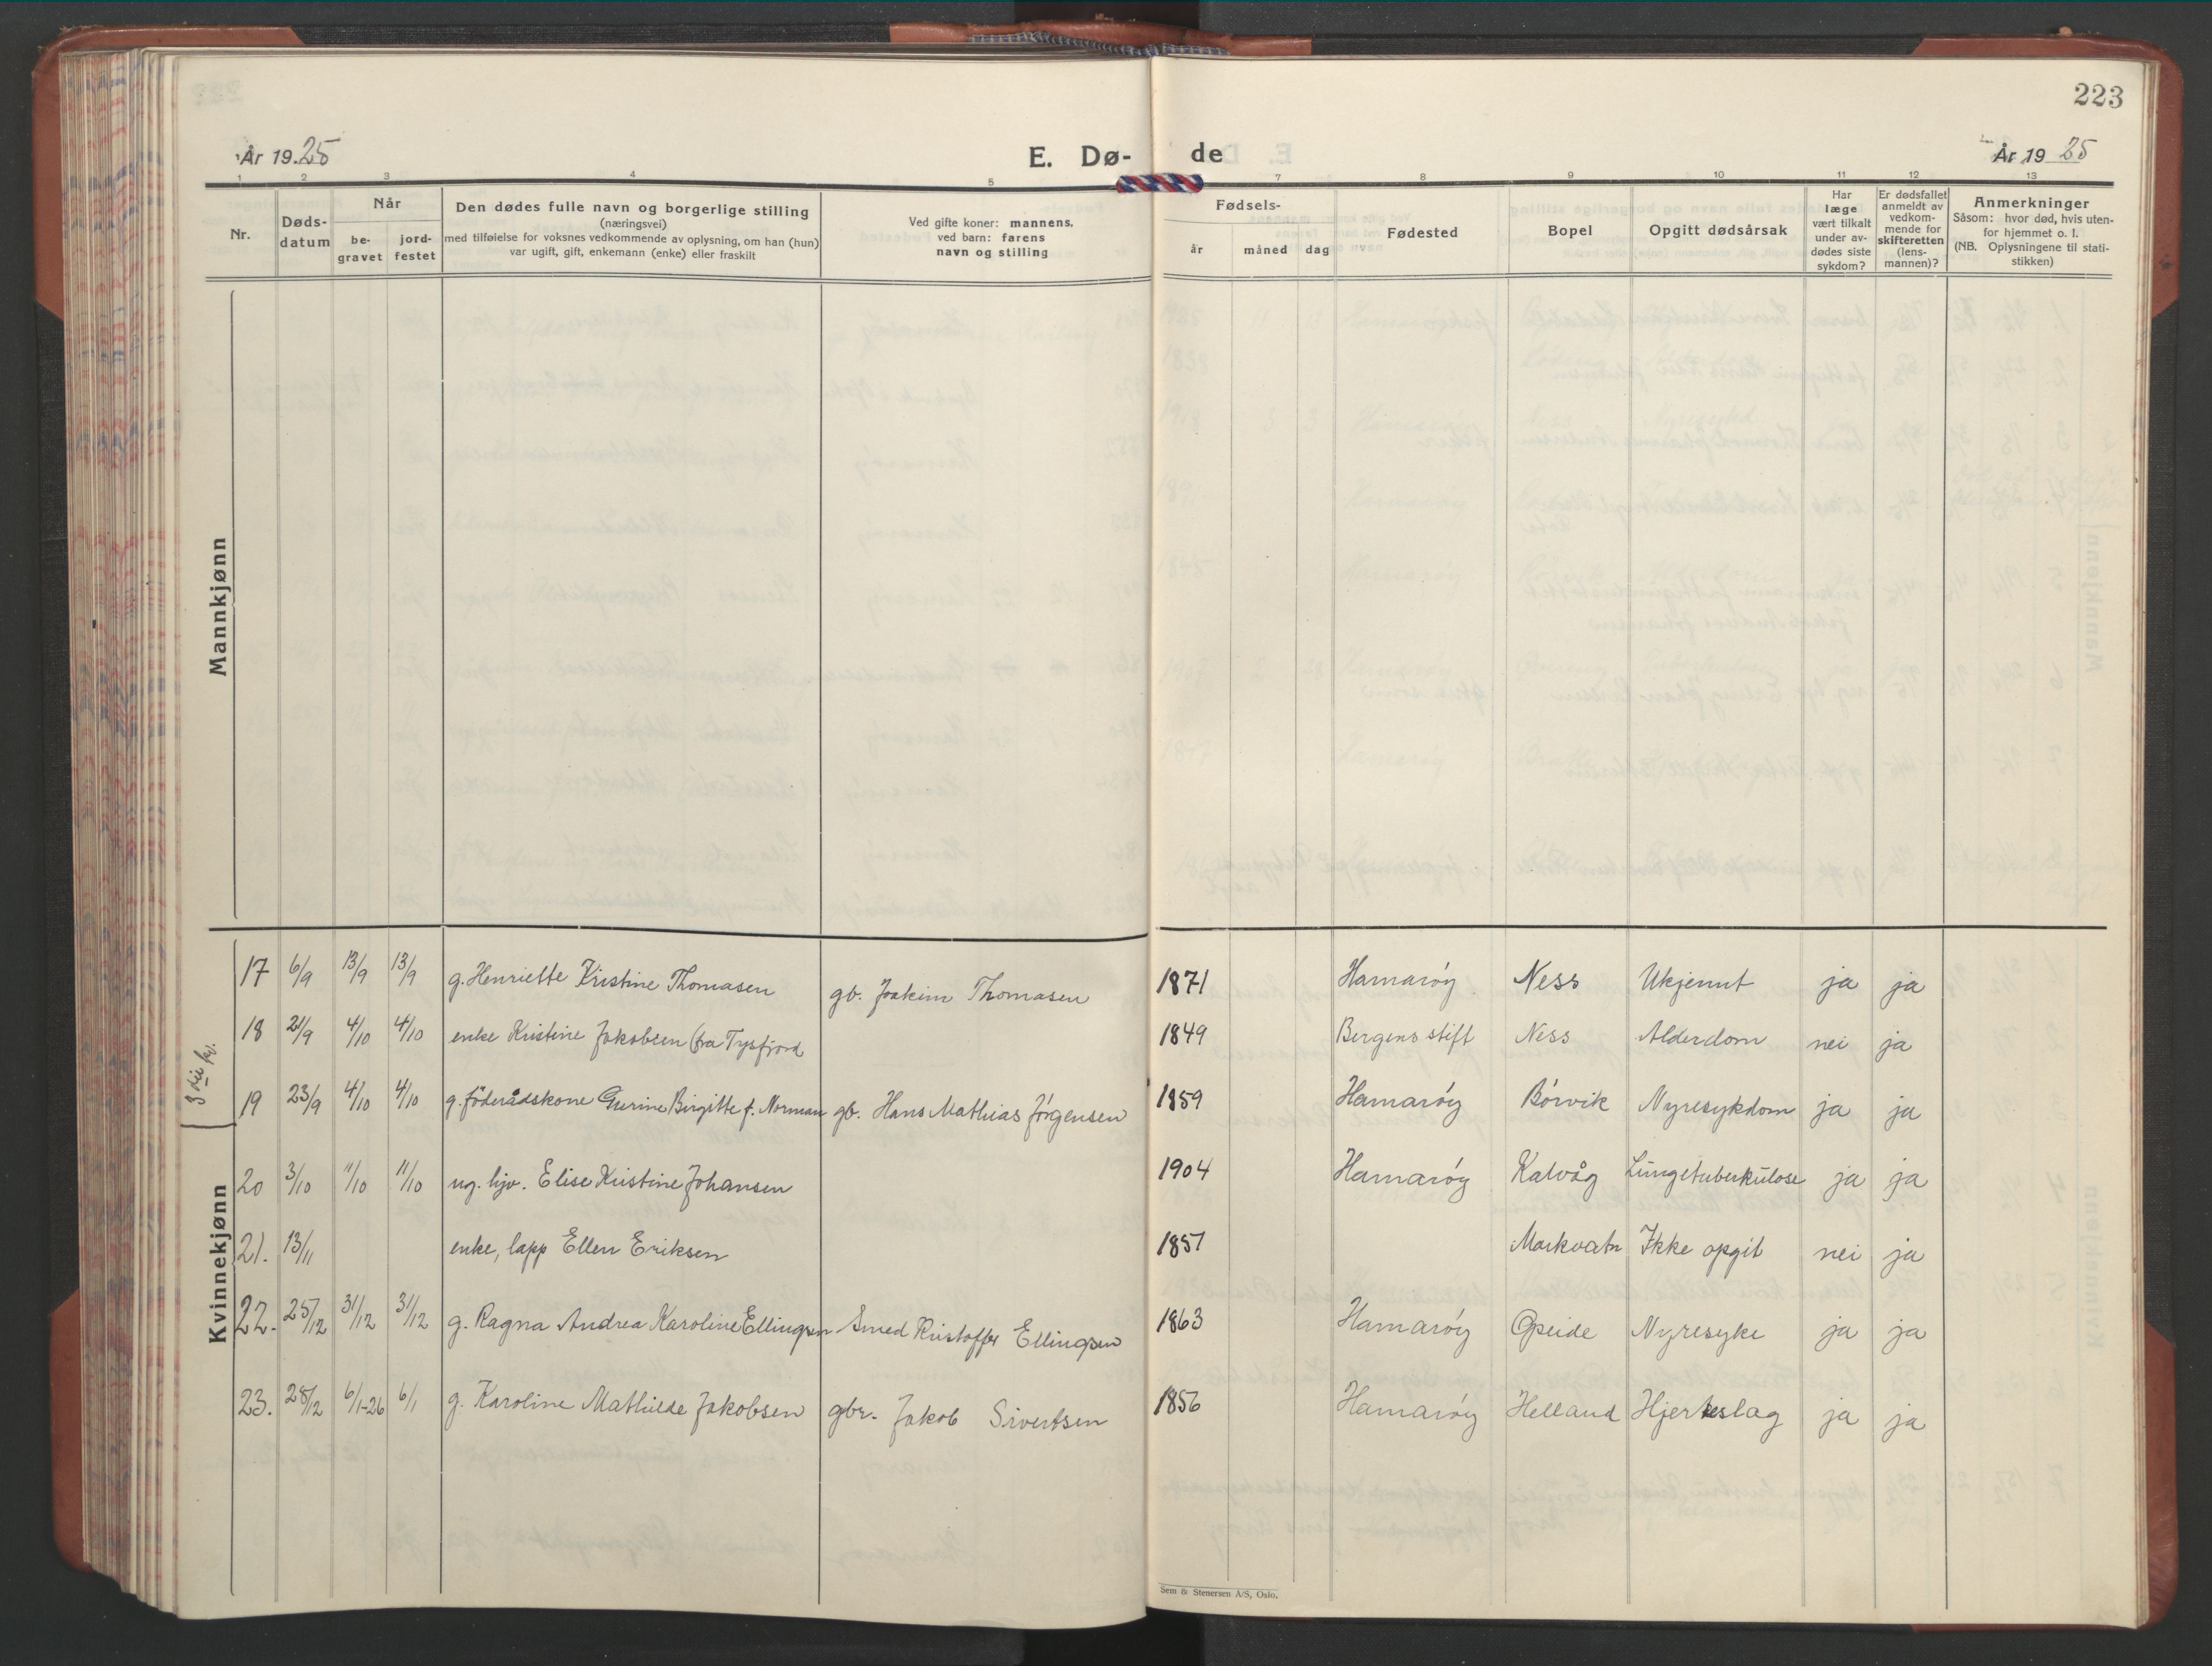 223
År 1925
E. Dø- de
År 1925
1 2 3 4 5 7 8 9 10 11 12 13
Nr.
Døds-
datum
Når
be-
gravet
jord-
festet
Den dødes fulle navn og borgerlige stilling
(næringsvei)
med tilføielse for voksnes vedkommende av oplysning, om han (hun)
var ugift, gift, enkemann (enke) eller fraskilt
Ved gifte koner: mannens,
ved barn: farens
navn og stilling
Fødsels-
år måned dag
Fødested
Bopel
Opgitt dødsårsak
Har
læge
vært tilkalt
under av-
dødes siste
sykdom?
Er dødsfallet
anmeldt av
vedkom-
mende for
skifteretten
(lens-
mannen)?
Anmerkninger
Såsom: hvor død, hvis uten-
for hjemmet o. l.
(NB. Oplysningene til stati-
stikken)
Mannkjønn
Kvinnekjønn
17 6/9 13/9 13/9 g. Henriette Kristine Thomasen gb. Joakim Thomasen 1871 Hamarøy Ness Ukjennt ja ja
18 21/9 4/10 4/10 enke Kristine Jakobsen (fra Tysfjord 1849 Bergens stift Ness Alderdom nei ja
19 23/9 4/10 4/10 g. föderådskone Gurine Birgitte f. Norman gb. Hans Mathias Jörgensen 1859 Hamarøy Börvik Nyresykdom ja ja
20 3/10 11/10 11/10 ug. hjv. Elise Kristine Johansen 1904 Hamarøy Kalvåg Lungetuberkulose ja ja
21. 13/11 enke, lapp Ellen Eriksen 1857 Markvatn Ikke opgit nei ja
22. 25/12 31/12 31/12 g. Ragna Andrea Karoline Ellingsen Smed Kristoffer Ellingsen 1863 Hamarøy Opeide Nyresyke ja ja
23. 28/12 6/1-26 6/1 g. Karoline Mathilde Jakobsen gbr. Jakob Sivertsen 1856 Hamarøy Helland Hjerteslag ja ja
Sem & Stenersen A/S, Oslo.